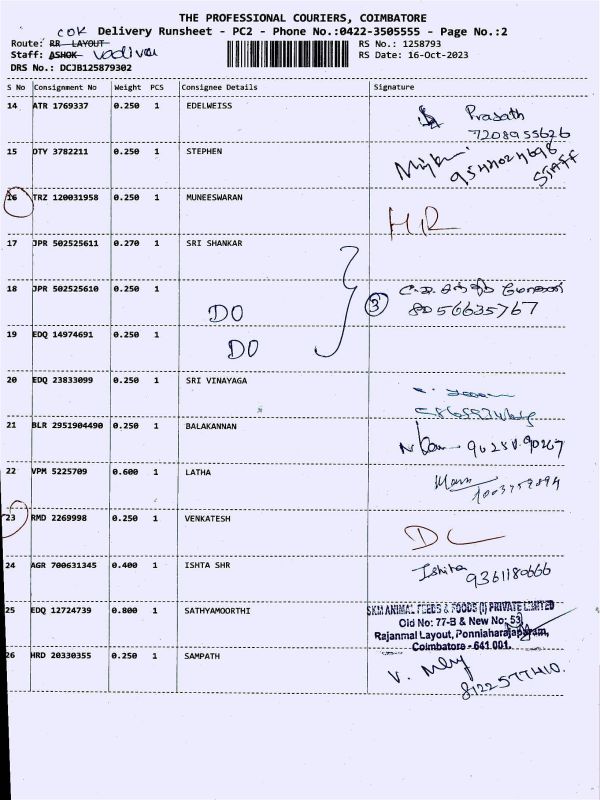 THE PROFESSIONAL COURIERS, COIMBATORE
Delivery Runsheet - PC2 - Phone No.:0422-3505555 - Page No.:2
COK
Route: RR LAYOUT
RS No.: 1258793
Staff: ASHOK Vadivel
RS Date: 16-Oct-2023
DRS No.: DCJB125879302
S No Consignment No Weight PCS Consignee Details Signature
14 ATR 1769337 0.250 1 EDELWEISS
Prasath
7208955626
15 DTY 3782211 0.250 1 STEPHEN
STAFF
16 TRZ 120031958 0.250 1 MUNEESWARAN
17 JPR 502525611 0.270 1 SRI SHANKAR
18 JPR 502525610 0.250 1
DO
3
8056635767
19 EDQ 14974691 0.250 1
DO
20 EDQ 23833099 0.250 1 SRI VINAYAGA
21 BLR 2951904490 0.250 1 BALAKANNAN
22 VPM 5225709 0.600 1 LATHA
23 RMD 2269998 0.250 1 VENKATESH
DC
24 AGR 700631345 0.400 1 ISHTA SHR
Ishita
9361180666
25 EDQ 12724739 0.800 1 SATHYAMOORTHI
SKM ANIMAL FEEDS & FOODS (I) PRIVATE LIMITED
Old No: 77-B & New No: 53,
Rajanmal Layout, Ponniaharajapuram,
Coimbatore - 641 001.
26 HRD 20330355 0.250 1 SAMPATH
8122577410.